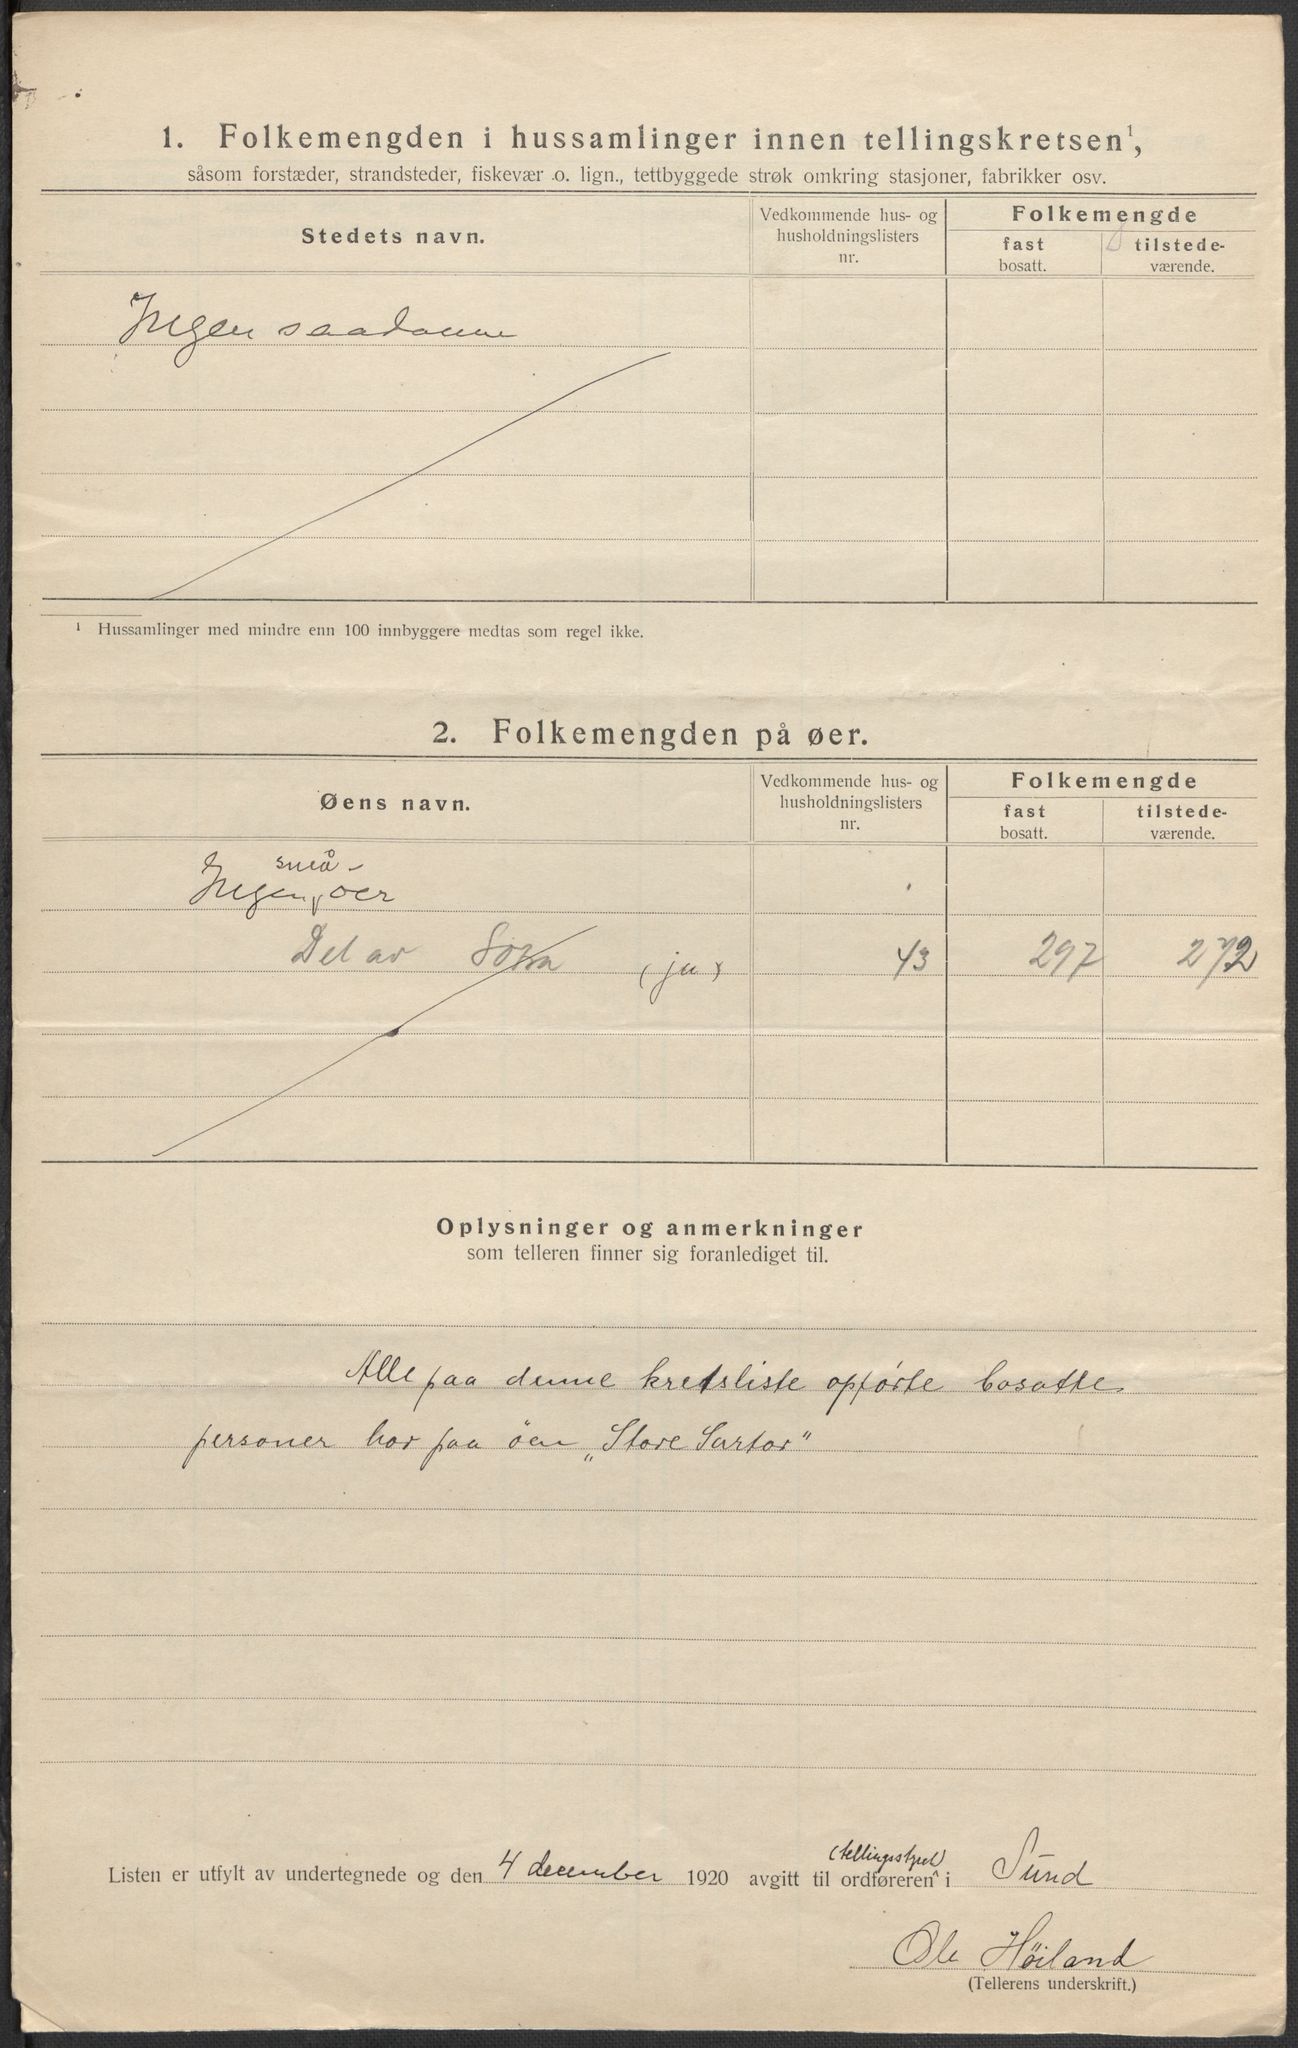 1. Folkemengden i hussamlinger innen tellingskretsen¹,
såsom forstæder, strandsteder, fiskevær o. lign., tettbyggede strøk omkring stasjoner, fabrikker osv.
Stedets navn.
Vedkommende hus- og
husholdningslisters
nr.
Folkemengde
fast
bosatt.
tilstede-
værende.
Ingen saadanne
¹ Hussamlinger med mindre enn 100 innbyggere medtas som regel ikke.
2. Folkemengden på øer.
Øens navn.
Vedkommende hus- og
husholdningslisters
nr.
Folkemengde
fast
bosatt.
tilstede-
værende.
små-
Ingen øer
Del av Sotra (ja) 43 297 272
Oplysninger og anmerkninger
som telleren finner sig foranlediget til.
Alle paa denne kretsliste opførte bosatte
personer bor paa öen „Store Sartor"
(tellingsstyret)
Listen er utfylt av undertegnede og den 4 december 1920 avgitt til ordføreren i Sund
Ole Høiland
(Tellerens underskrift.)